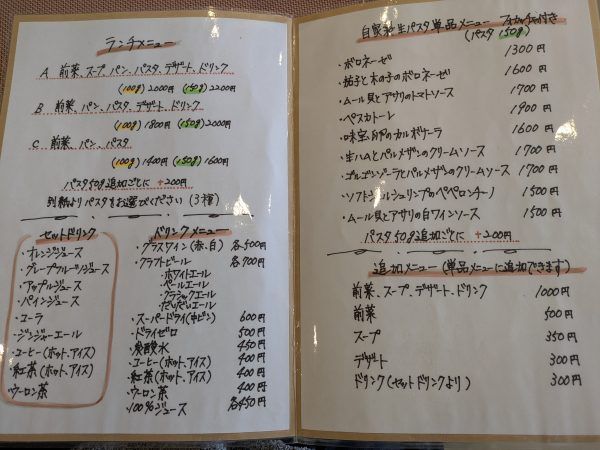 ランチメニュー
A 前菜、スープ、パン、パスタ、デザート、ドリンク
(100g) 2000円 (150g) 2200円
B 前菜、パン、パスタ、デザート、ドリンク
(100g) 1800円 (150g) 2000円
C 前菜、パン、パスタ
(100g) 1400円 (150g) 1600円
パスタ50g追加ごとに +200円
別紙よりパスタをお選びください (3種)
セットドリンク
・オレンジジュース
・グレープフルーツジュース
・アップルジュース
・パインジュース
・コーラ
・ジンジャーエール
・コーヒー(ホット、アイス)
・紅茶(ホット、アイス)
・ウーロン茶
ドリンクメニュー
・グラスワイン(赤・白) 各500円
・クラフトビール 各700円
・ホワイトエール
・ペールエール
・クラシックエール
・だいだいエール
・スーパードライ(中ビン) 600円
・ドライゼロ 500円
・炭酸水 450円
・コーヒー(ホット、アイス) 400円
・紅茶(ホット、アイス) 400円
・ウーロン茶 400円
・100%ジュース 各450円
自家製生パスタ単品メニュー フォカッチャ付き
(パスタ 150g)
・ボロネーゼ 1300円
・茄子と木の子のボロネーゼ 1600円
・ムール貝とアサリのトマトソース 1700円
・ペスカトーレ 1900円
・味宝卵のカルボナーラ 1600円
・生ハムとパルメザンのクリームソース 1700円
・ゴルゴンゾーラとパルメザンのクリームソース 1700円
・ソフトシェルシュリンプのペペロンチーノ 1500円
・ムール貝とアサリの白ワインソース 1500円
パスタ50g追加ごとに +200円
追加メニュー (単品メニューに追加できます)
前菜、スープ、デザート、ドリンク 1000円
前菜 500円
スープ 350円
デザート 300円
ドリンク(セットドリンクより) 300円